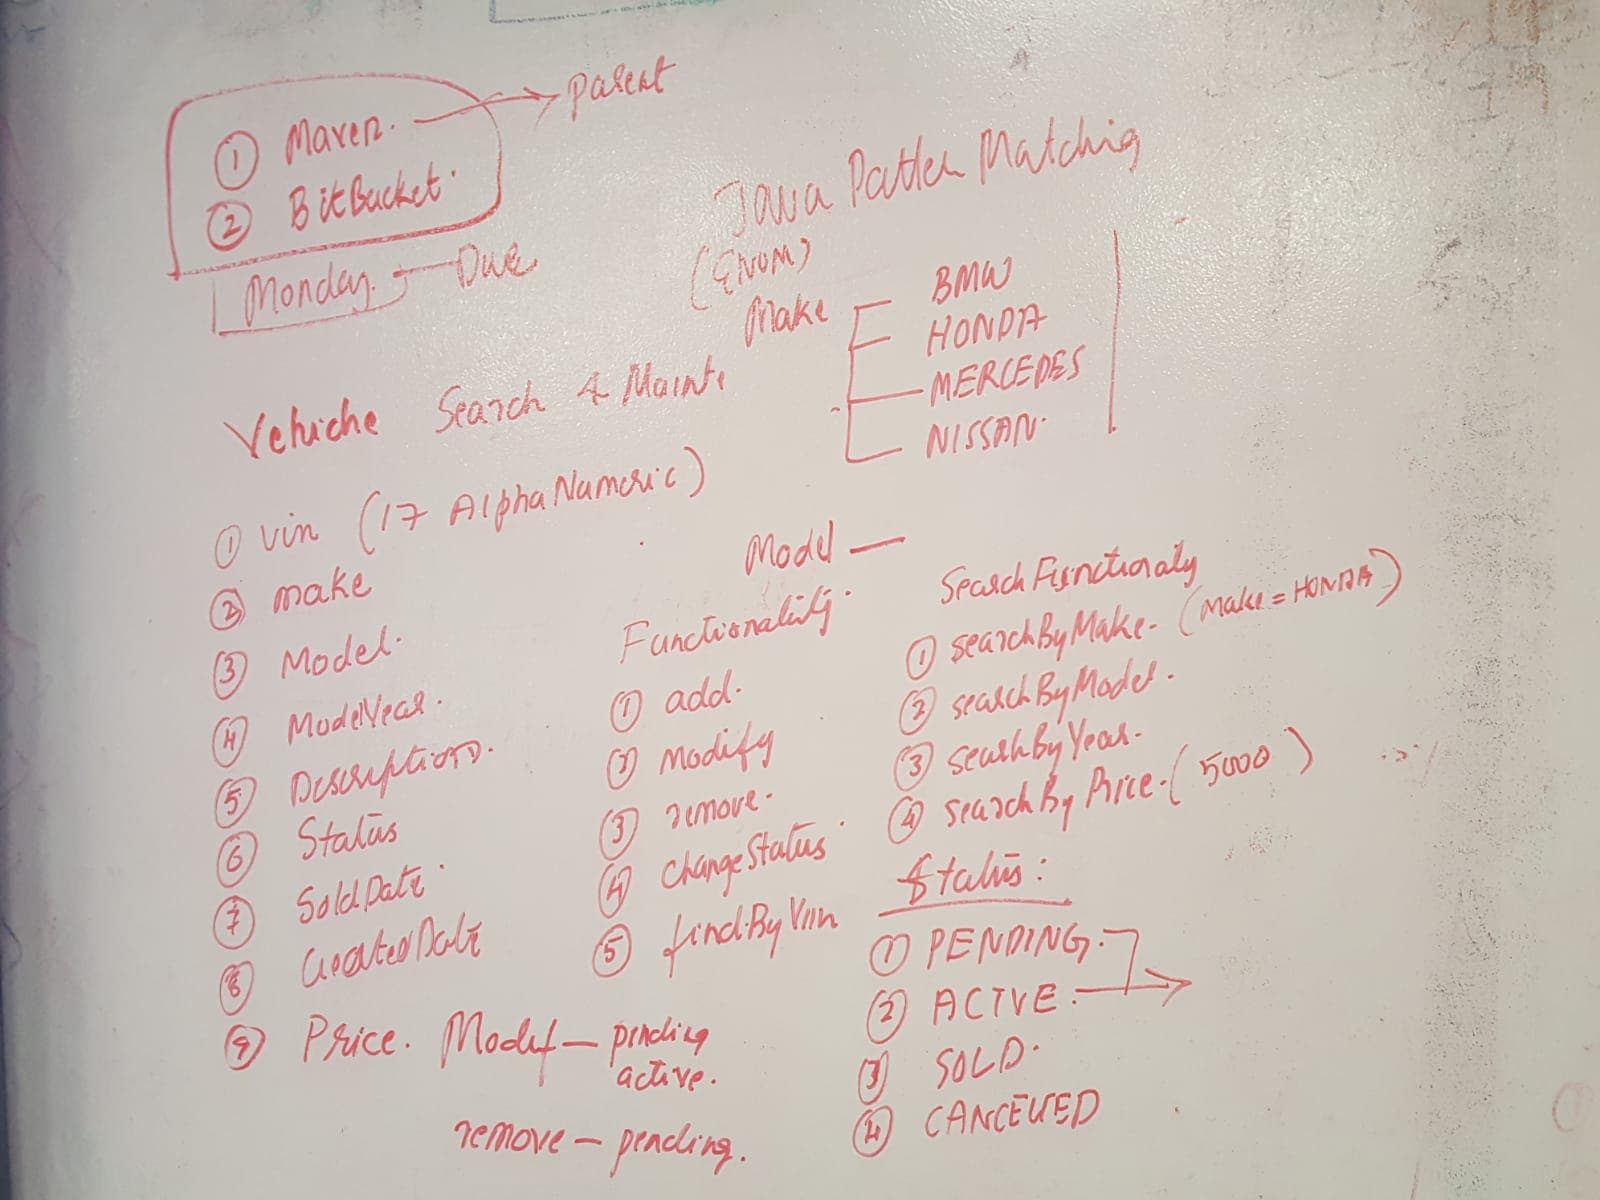 ① Maven. → parent
② BitBucket.
Monday. — Due
Java Patten Matching
(ENUM)
Make
BMW
HONDA
MERCEDES
NISSAN.
Vehiche Search & Maint.
① vin (17 AlphaNumeric)
② make
③ Model.
④ ModelYear.
⑤ Description.
⑥ Status
⑦ SoldDate.
⑧ CreatedDate
⑨ Price.
Model —
Functionality.
① add.
② Modify
③ remove.
④ changeStatus
⑤ findByVin
Search Functionaly
① searchByMake. (Make = HONDA)
② searchByModel.
③ searchByYear.
④ searchByPrice. (5000)
Status:
① PENDING.
② ACTIVE.
③ SOLD.
④ CANCELLED
Modif — pending
active.
remove — pending.